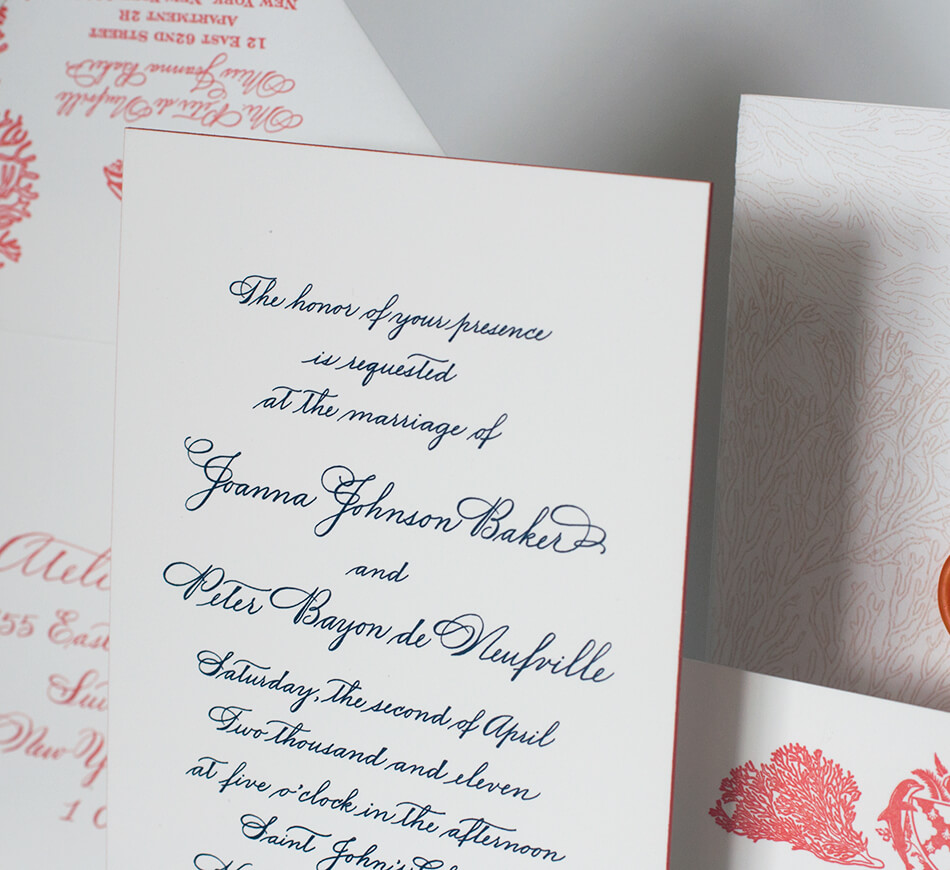 The honor of your presence
is requested
at the marriage of
Joanna Johnson Baker
and
Peter Bayon de Neufville
Saturday, the second of April
Two thousand and eleven
at five o'clock in the afternoon
Saint John's
NEW YORK,
APARTMENT 2R
12 EAST 62ND STREET
Miss Joanna Baker
Mr. Peter de Neufville
55 East
New Y